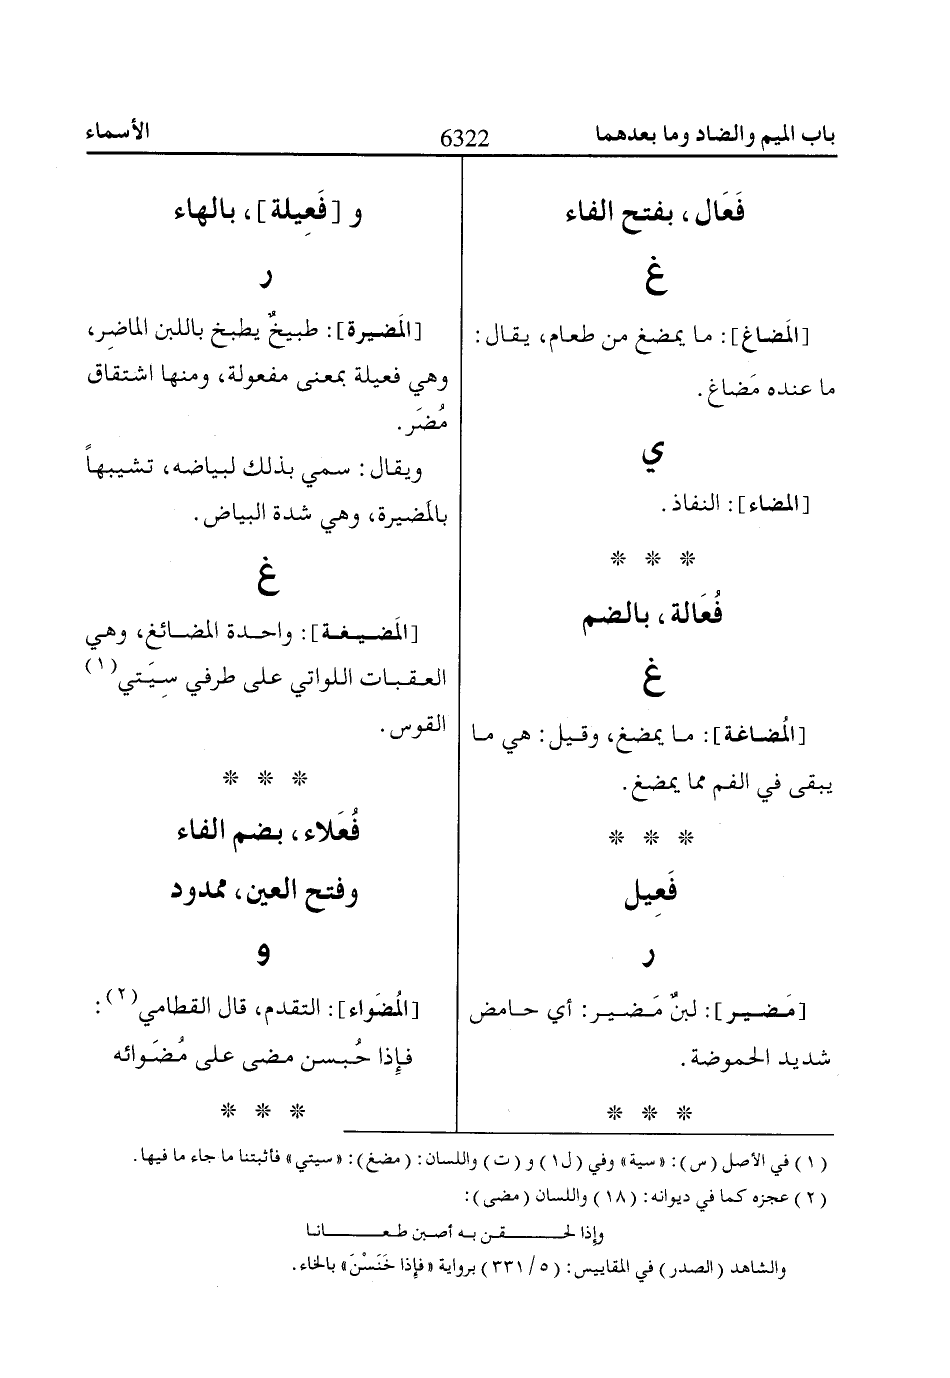 باب الميم والضاد وما بعدهما
6322
الأسماء
فَعَال، بفتح الفاء
غ
[المَضاغ]: ما يمضغ من طعام، يقال:
ما عنده مَضاغ.
ي
[المضاء]: النفاذ.
* * *
فُعَالة، بالضم
غ
[المُضاغة]: ما يمضغ، وقيل: هي ما
يبقى في الفم مما يمضغ.
* * *
فَعِيل
ر
[مَضير]: لبنٌ مَضير: أي حامض
شديد الحموضة.
* * *
و [فَعِيلة]، بالهاء
ر
[المَضيرة]: طبيخٌ يطبخ باللبن الماضِر،
وهي فعيلة بمعنى مفعولة، ومنها اشتقاق
مُضَر.
ويقال: سمي بذلك لبياضه، تشيبهاً
بالمَضيرة، وهي شدة البياض.
غ
[المَضيغة]: واحدة المضائغ، وهي
العقبات اللواتي على طرفي سِيَتي(١)
القوس.
* * *
فُعَلاء، بضم الفاء
وفتح العين، ممدود
و
[المُضَواء]: التقدم، قال القطامي(٢):
فإِذا حُبسن مضى على مُضَوائه
* * *
(١) في الأصل (س): «سية» وفي (ل١) و (ت) واللسان: (مضغ): «سيتي» فأثبتنا ما جاء ما فيها.
(٢) عجزه كما في ديوانه: (١٨) واللسان (مضى):
وإذا لحقن به أصبن طعانا
والشاهد (الصدر) في المقاييس: (٥/٣٣١) برواية «فإذا خَنَسْنَ» بالخاء.